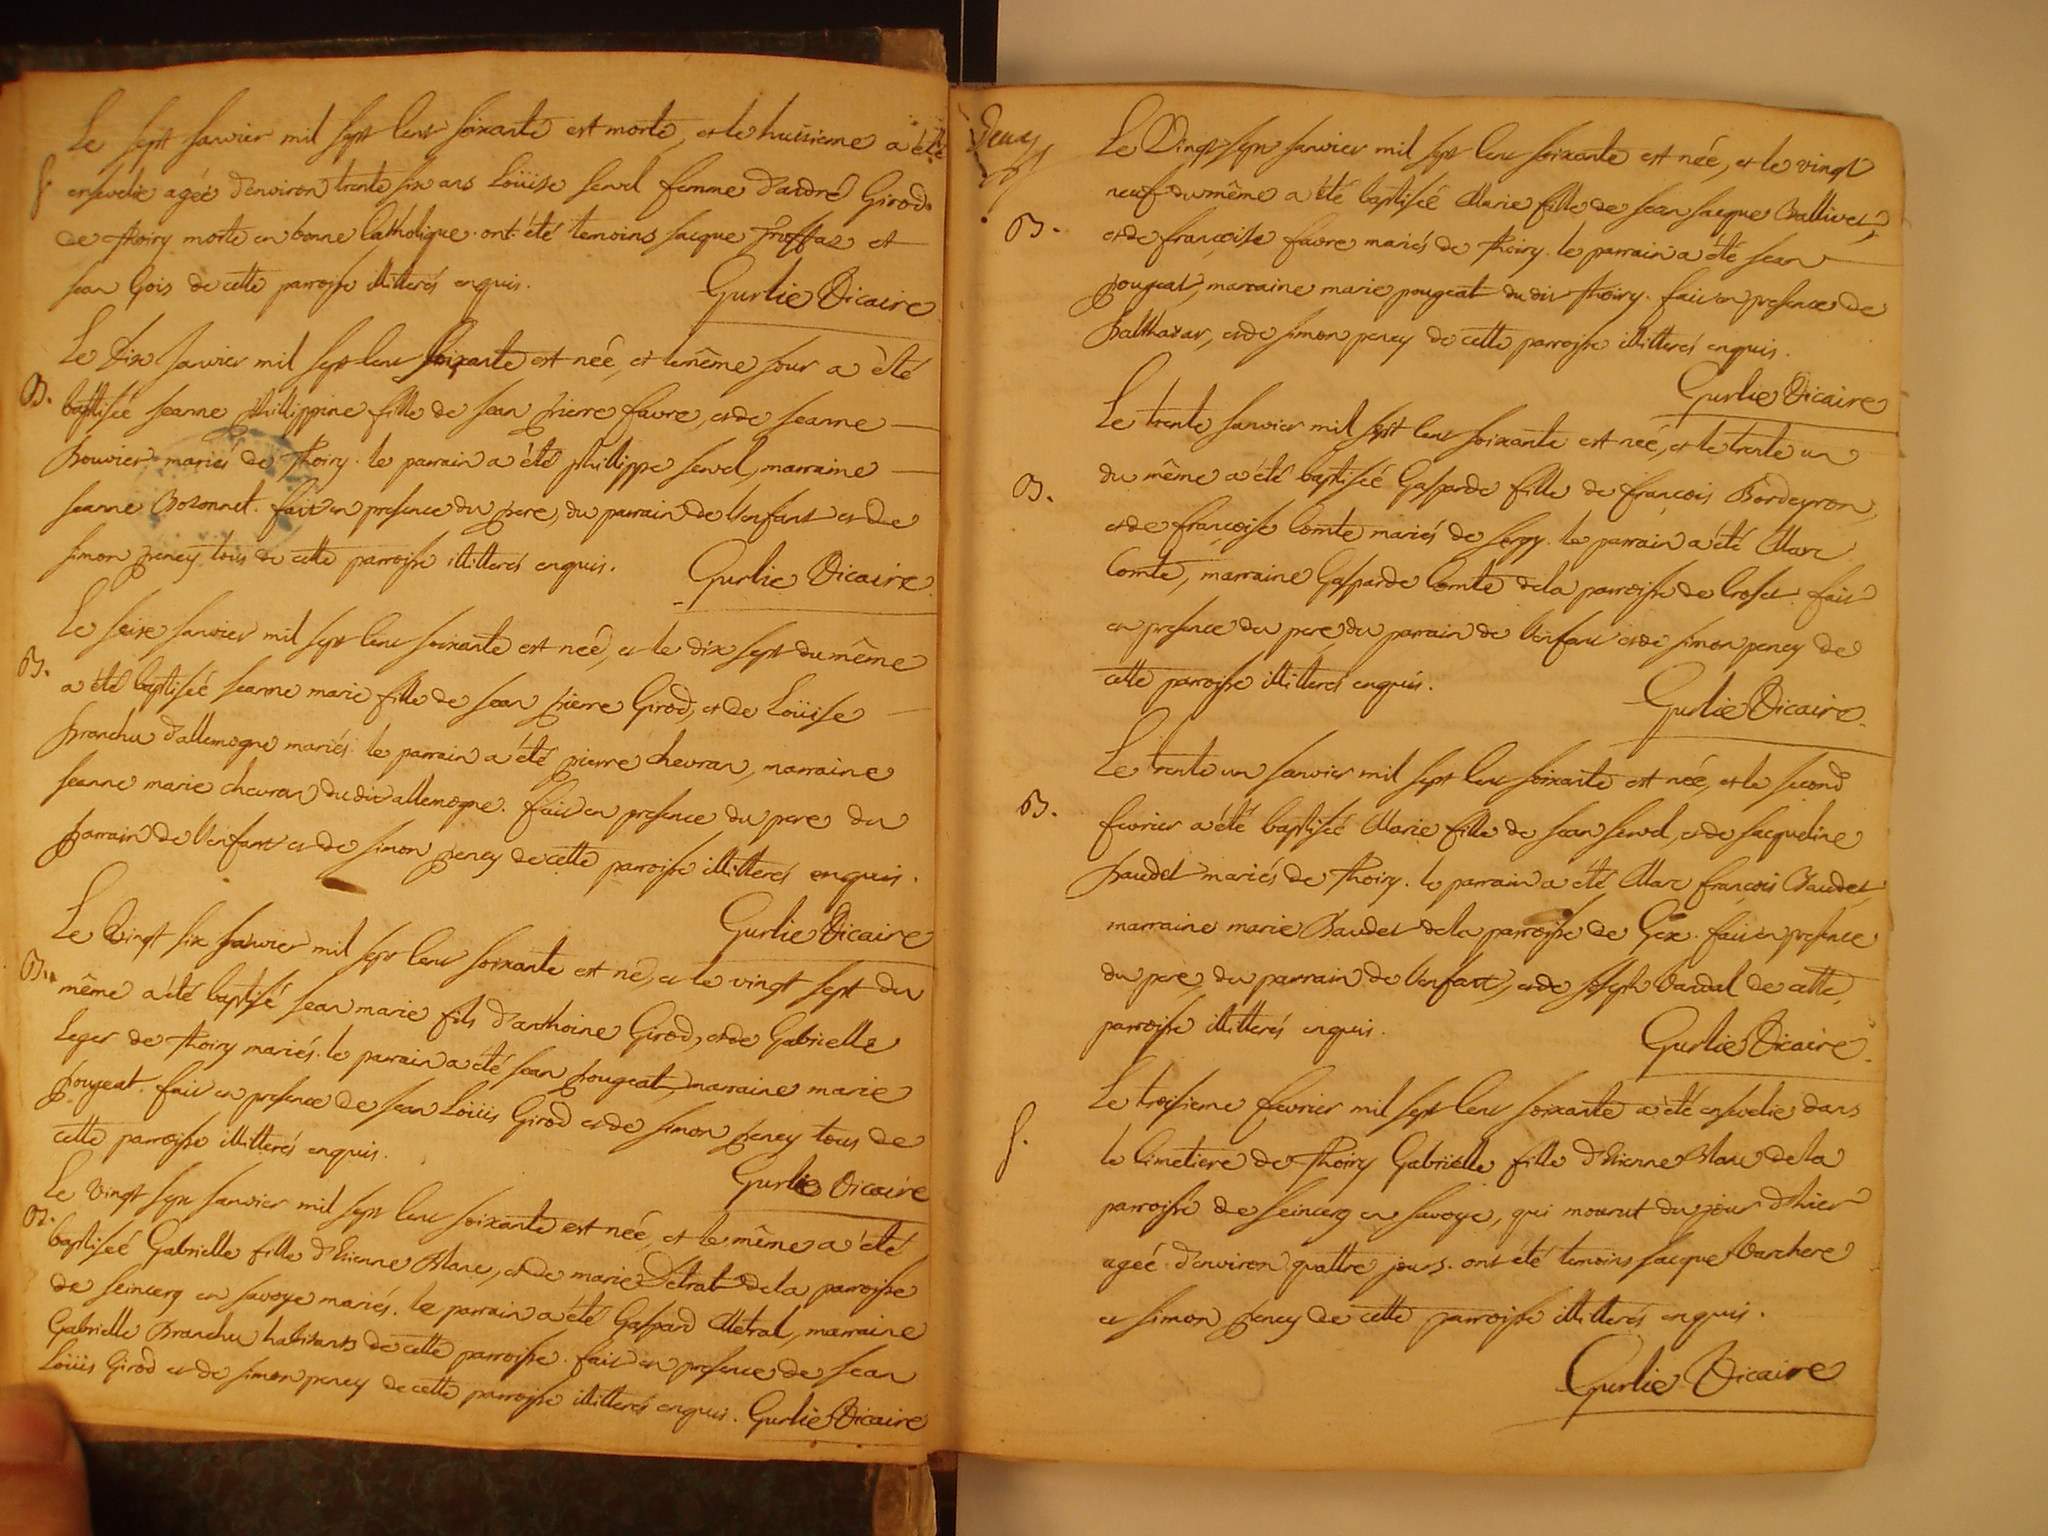 Le sept Janvier mil sept Cent soixante est morte, et le huitieme a été
S.
ensevelie agée d'environ trente six ans Loüise Servel femme d'andré Girod
de Thoiry morte en bonne Catholique. ont été temoins Jacque Truffaz et
Jean Gois de cette parroisse illitterés enquis.
Gurlie Vicaire
Le Dix Janvier mil sept Cent soixante est neé, et le même jour a été
B.
baptisée Jeanne phillippine fille de Jean pierre favre, et de Jeanne
Bouvier mariés de Thoiry. le parrain a été phillippe Servel, marraine
Jeanne Bozonnet. fait en presence du pere, du parrain de l'enfant et de
simon peney tous de cette parroisse illitterés enquis.
Gurlie Vicaire
Le seize Janvier mil sept Cent soixante est neé, et le dix sept du même
B.
a été baptiseé Jeanne marie fille de Jean pierre Girod, et de Loüise
Branchu d'allemogne mariés. le parrain a été pierre chevran, marraine
Jeanne marie chevran du dit allemogne. fait en presence du pere du
parrain de l'enfant et de simon peney de cette parroisse illitterés enquis.
Gurlie Vicaire
Le Vingt six Janvier mil sept Cent soixante est né, et le vingt sept du
B.
même a été baptisé Jean marie fils d'anthoine Girod, et de Gabrielle
Leger de Thoiry mariés. le parrain a été Jean pougeat, marraine marie
pougeat. fait en presence de Jean Loüis Girod et de simon peney tous de
cette parroisse illitterés enquis.
Gurlie Vicaire
Le Vingt sept Janvier mil sept Cent soixante est neé, et le même a été
B.
baptiseé Gabrielle fille d'Etienne Blanc, et de marie Detrat de la parroisse
de seincerg en savoye mariés. le parrain a été Gaspard Metral, marraine
Gabrielle Branchu habitants de cette parroisse. fait en presence de Jean
Loüis Girod et de simon peney de cette parroisse illitterés enquis. Gurlie Vicaire
Deux
Le Vingt sept Janvier mil sept Cent soixante est neé, et le vingt
neuf du même a été baptiseé Marie fille de Jean Jacque Ballivet,
B.
et de françoise favre mariés de Thoiry. le parrain a été Jean
pougeat, marraine marie pougeat du dit Thoiry. fait en presence de
Balthazar, et de simon peney de cette parroisse illitterés enquis.
Gurlie Vicaire
Le trente Janvier mil sept Cent soixante est neé, et le trente un
B.
du même a été baptiseé Gasparde fille de françois Bordeyron,
et de françoise Comte mariés de sergy. le parrain a été Marc
Comte, marraine Gasparde Comte de la parroisse de Croset. fait
en presence du pere, du parrain de l'enfant et de simon peney de
cette parroisse illitterés enquis.
Gurlie Vicaire
Le trente un Janvier mil sept Cent soixante est neé, et le second
B.
fevrier a été baptiseé Marie fille de Jean Servel, et de Jacqueline
Baudet mariés de Thoiry. le parrain a été Marc françois Baudet,
marraine marie Baudet de la parroisse de Gex. fait en presence
du pere, du parrain de l'enfant, et de Joseph Vandal de cette
parroisse illitterés enquis.
Gurlie Vicaire
Le troisieme fevrier mil sept Cent soixante a été ensevelie dans
S.
le Cimetiere de Thoiry Gabrielle fille d'Etienne Blanc de la
parroisse de seincerg en savoye, qui mourut du jour d'hier
agée d'environ quattre jours. ont été temoins Jacque Varchere
et simon peney de cette parroisse illitterés enquis.
Gurlie Vicaire